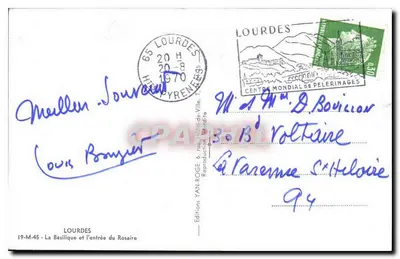 65 LOURDES
20 H
20-8
1970
HTES PYRENEES
LOURDES
CENTRE MONDIAL de PELERINAGES
0,30
Meilleur Souvenir
Louis
M et Mme D. Bouillon
30 Bd Voltaire
La Varenne St Hilaire
94
LOURDES
19-M-45 - La Basilique et l'entrée du Rosaire
Editions YAN-ROGE, 6,
Reproduction interdite